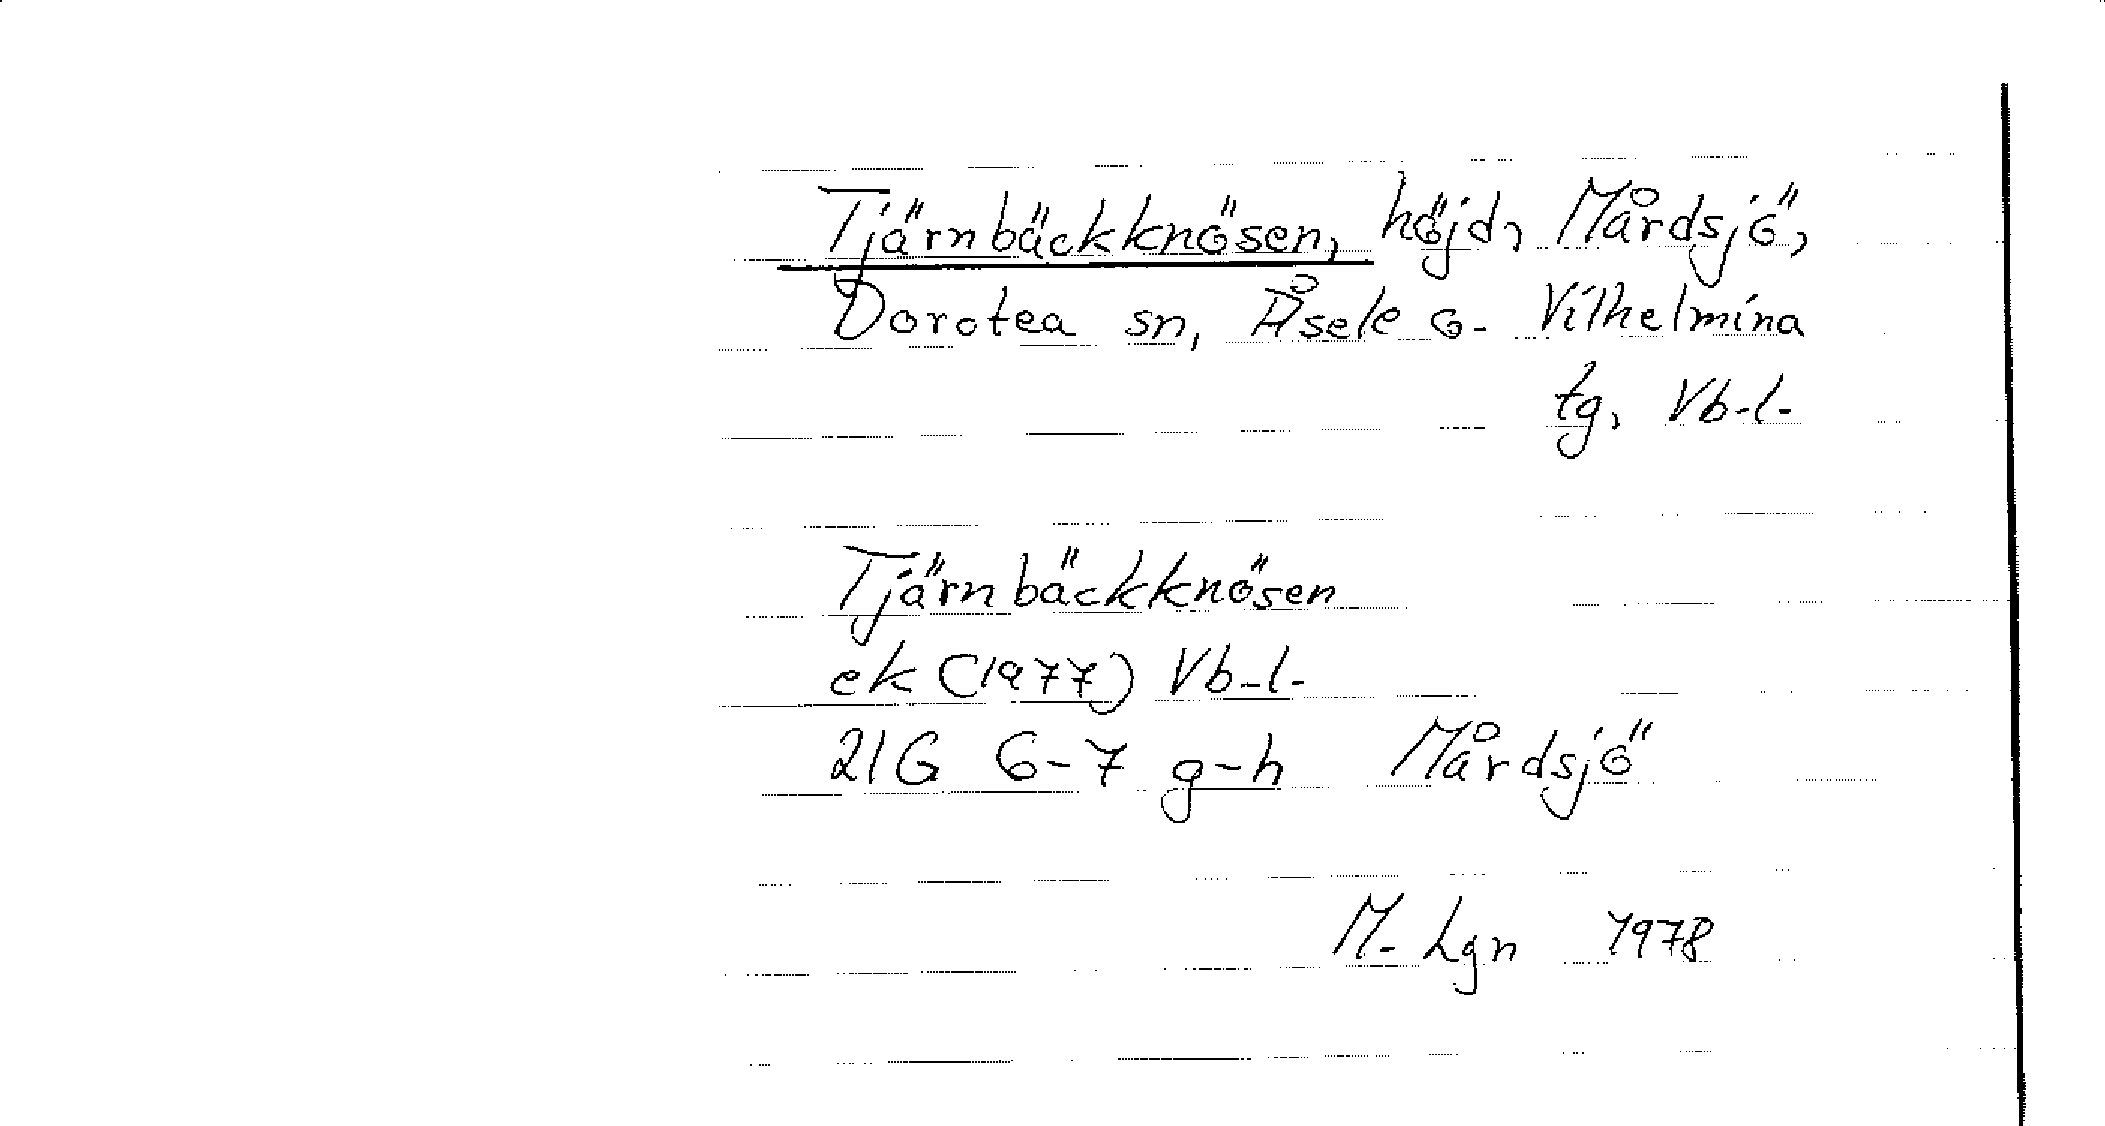 Tjärnbäckknösen, höjd, Mårdsjö,
Dorotea sn, Åsele o. Vilhelmina
tg, Vb.l.
Tjärnbäckknösen
ek (1977) Vb.l.
21G 6-7 g-h Mårdsjö
M. Lgn 1978